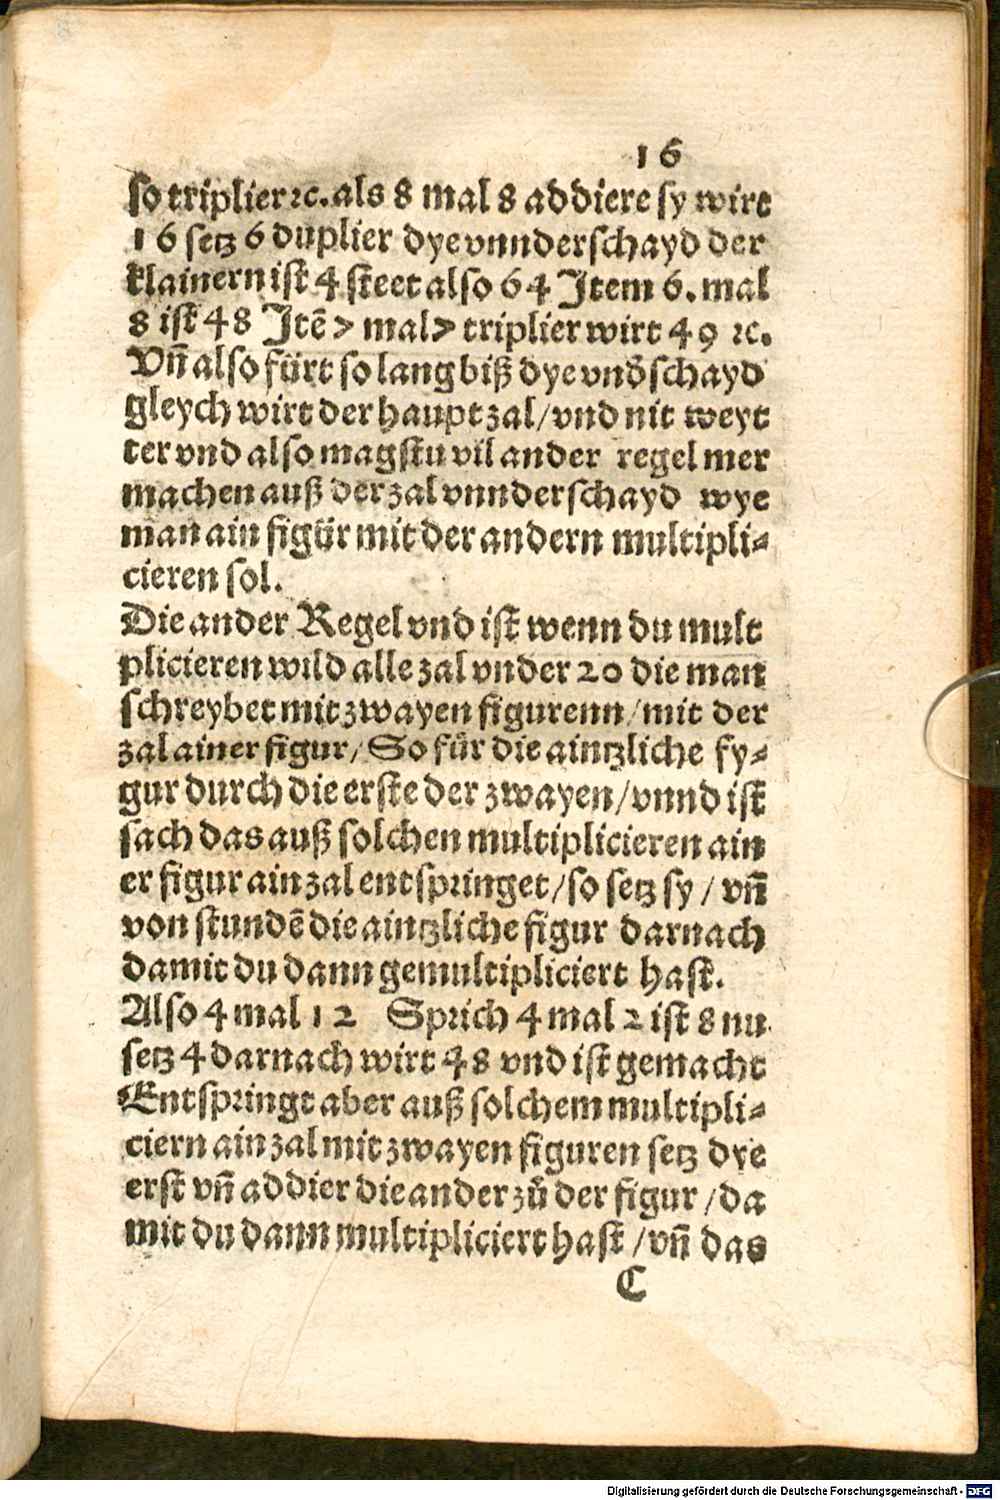 16
so triplier ꝛc. als 8 mal 8 addiere sy wirt
16 setz 6 duplier dye vnnderschayd der
klainern ist 4 steet also 64 Item 6. mal
8 ist 48 Itē > mal > triplier wirt 49 ꝛc.
Vn̄ also fürt so lang biß dye vnd̕schayd
gleych wirt der hauptzal/vnd nit weyt
ter vnd also magstu vil ander regel mer
machen auß der zal vnnderschayd wye
man ain figür mit der andern multipli⸗
cieren sol.
Die ander Regel vnd ist wenn du mult
plicieren wild alle zal vnder 20 die man
schreybet mit zwayen figurenn/mit der
zal ainer figur/So für die aintzliche fy⸗
gur durch die erste der zwayen/vnnd ist
sach das auß solchen multiplicieren ain
er figur ain zal entspringet/so setz sy/vn̄
von stundē die aintzliche figur darnach
damit du dann gemultipliciert hast.
Also 4 mal 12 Sprich 4 mal 2 ist 8 nu
setz 4 darnach wirt 48 vnd ist gemacht
Entspringt aber auß solchem multipli⸗
ciern ain zal mit zwayen figuren setz dye
erst vn̄ addier die ander zů der figur/da
mit du dann multipliciert hast/vn̄ das
C
Digitalisierung gefördert durch die Deutsche Forschungsgemeinschaft - DFG